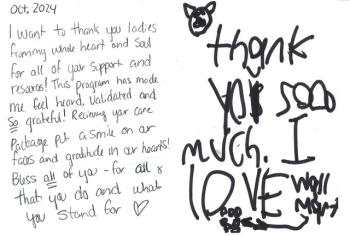 Oct, 2024
I want to thank you ladies
from my whole heart and soul
for all of your support and
resources! This program has made
me feel heard, validated and
So grateful! Recieving your care
Package put a smile on our
faces and gratitude in our hearts!
Bless all of you - for all
that you do and what
you stand for ♡
thank
you sooo
much. I
LOVE Wall
Mart